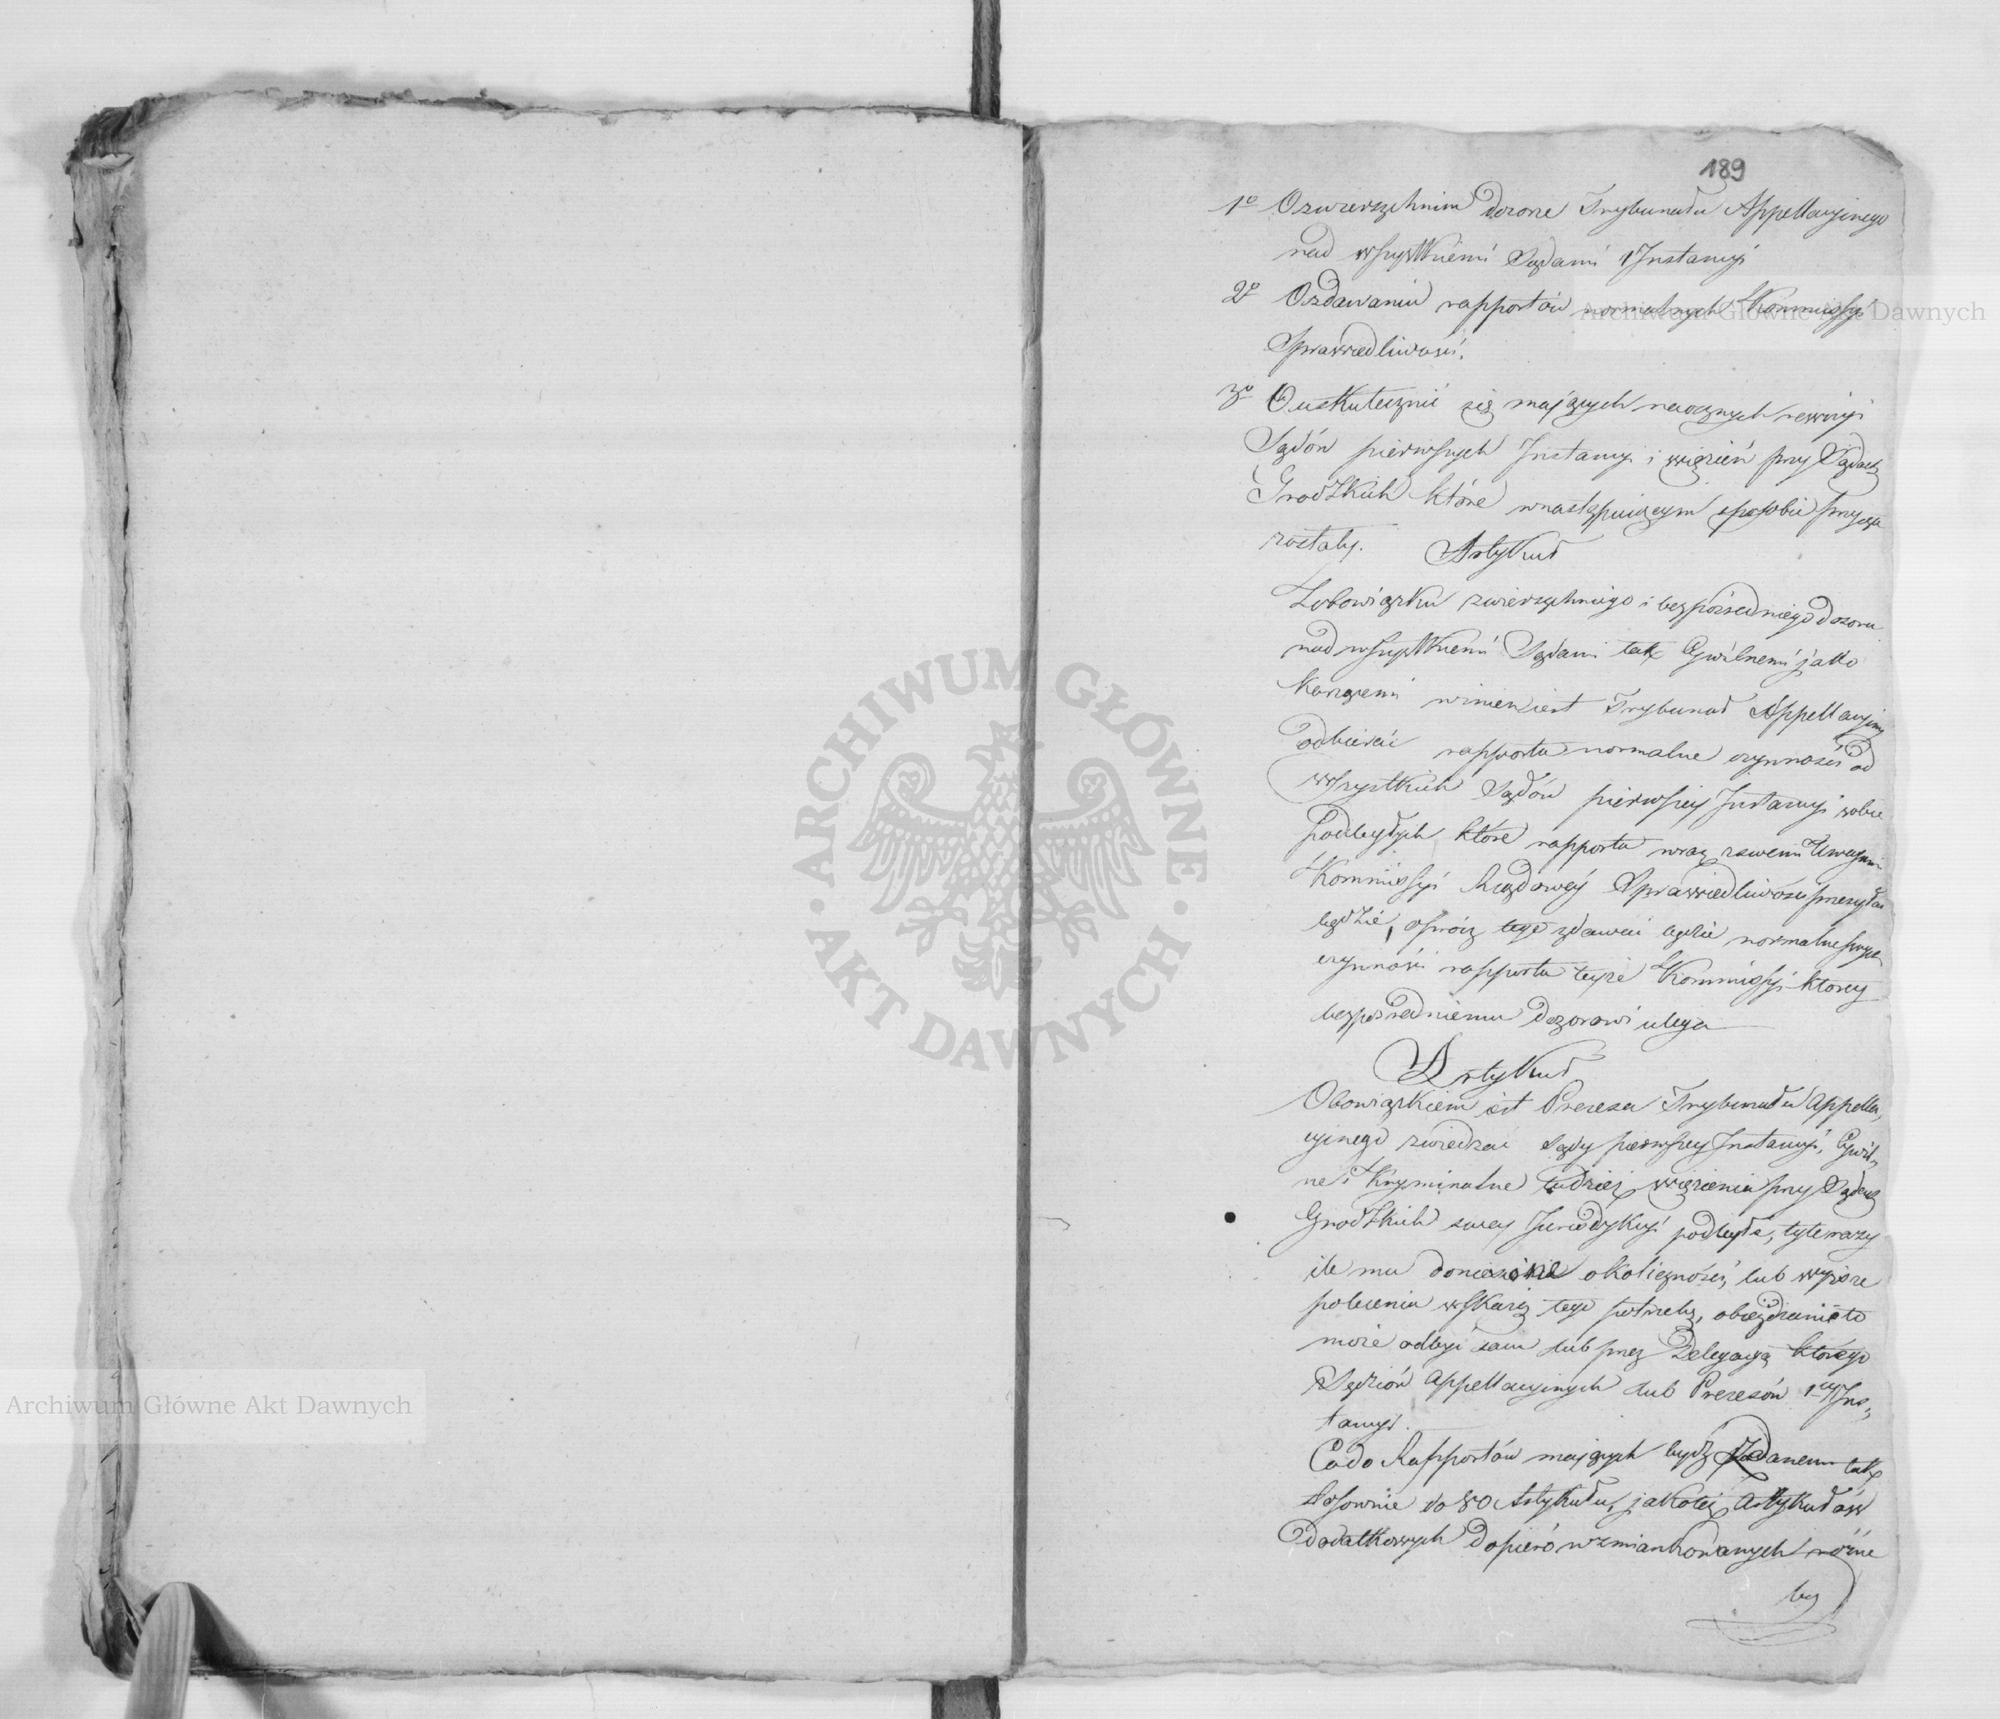 189
1o O zwierzchnim dozorze Trybunału Appellacyinego
nad wszystkiemi Sądami 1 Instancyi
2o O zdawaniu rapportów normalnych Kommissyi
Sprawiedliwości.
3o O uskutecznić się maiących naocznych rewizyi
Sądów pierwszych Instancyi i więzień przy Sądach
Grodzkich które w następuiącym sposobie
zostały. Artykuł
Z obowiązku zwierzchniego i bezpośredniego dozoru
nad wszystkiemi Sądami tak Cywilnemi jako
Karzącemi winien iest Trybunał Appellacyiny
odbierać rapporta normalne czynności od
wszystkich Sądów pierwszey Instancyi sobie
podległych które rapporta wraz z swemi Uwagami
Kommissyi Rządowey Sprawiedliwości przesyłać
będzie, oprócz tego zdawać będzie normalne swych
czynności rapporta teyże Kommissyi ktorey
bezpośredniemu dozorowi ulega
Artykuł
Obowiązkiem iest Prezesa Trybunału Appella„
cyinego zwiedzać Sądy pierwszey Instancyi, Cywil„
ne i Kryminalne tudzież więzienia przy Sądach
Grodzkich swey Jurisdykcyi podległe, tyle razy
ile mu doniesione okoliczności, lub wyższe
polecenia wskażą tego potrzebę, obieżdżanie to
może odbyć sam lub przez Delegacyą którego
Sędziów Appellacyinych lub Prezesów 1ey Ins„
tancyi.
Co do Rapportów maiących bydź zdanemi tak
stosownie do 80 Artykułu, jako też Artykułów
dodatkowych dopiero wzmiankowanych różne
by
Archiwum Główne Akt Dawnych
Archiwum Główne Akt Dawnych
ARCHIWUM GŁÓWNE
AKT DAWNYCH